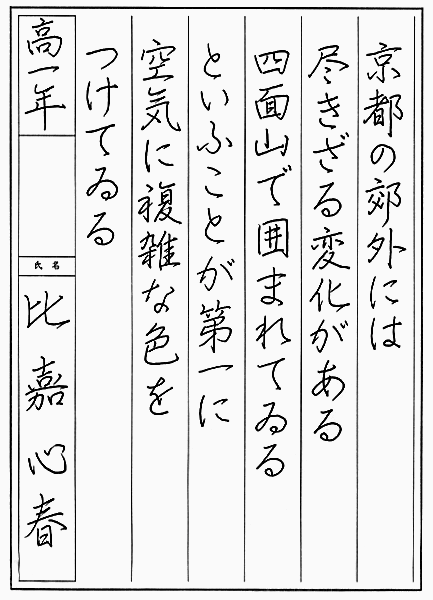 京都の郊外には
尽きざる変化がある
四面山で囲まれてゐる
といふことが第一に
空気に複雑な色を
つけてゐる
高一年
氏名
比嘉心春